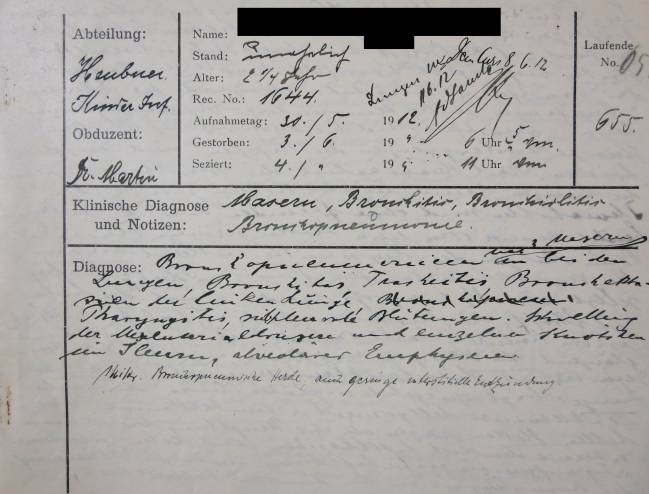 Abteilung:
Heubner
Kinder Inf.
Obduzent:
Dr. Martin
Name:
Stand: unehelich
Alter: 2 1/4 Jahr
Rec. No.: 1644.
Aufnahmetag: 30./5. 1912.
Gestorben: 3./6. 19 " 6 Uhr 5 vm.
Seziert: 4./ " 19 " 11 Uhr vm
Lungen
6.12
Laufende
No.
655.
Klinische Diagnose Masern, Bronchitis, Bronchiolitis
und Notizen: Bronchopneumonie.
nach Masern
Diagnose: Bronchopneumonieen an beiden
Lungen, Bronchitis, Tracheitis, Bronchekta-
sien der linken Lunge
Pharyngitis, subpleurale Blutungen. Schwellung
der Mesenterialdrüsen und einzelner Knötchen
im Ileum, alveoläres Emphysem
Mikr. Bronchopneumonie Herde, auch geringe interstitielle Entzündung